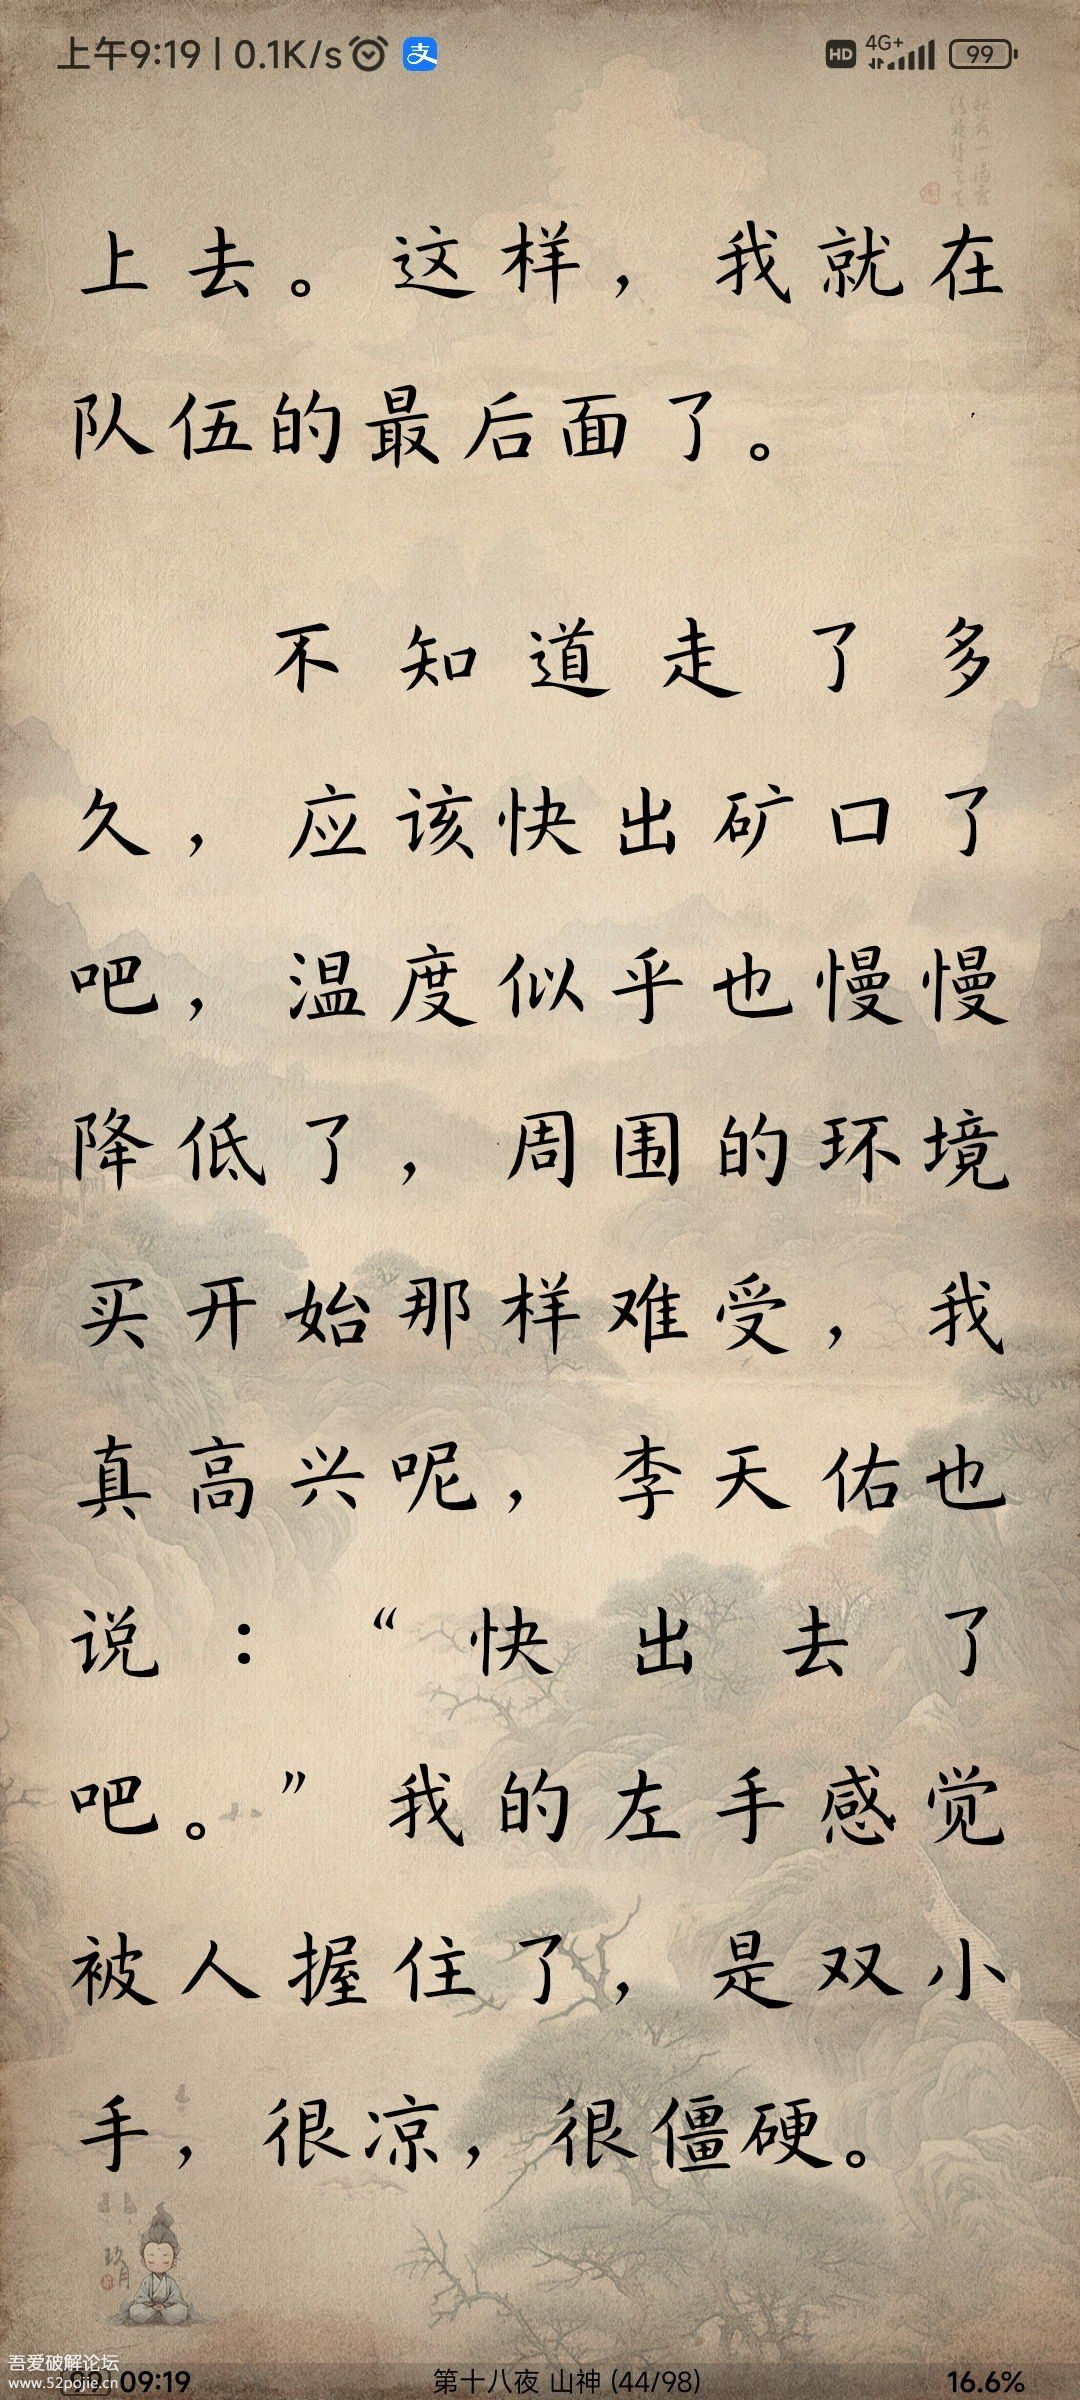 上午9:19 | 0.1K/s 支 HD 4G+ 99
上去。这样，我就在
队伍的最后面了。
不知道走了多
久，应该快出矿口了
吧，温度似乎也慢慢
降低了，周围的环境
买开始那样难受，我
真高兴呢，李天佑也
说：“快出去了
吧。”我的左手感觉
被人握住了，是双小
手，很凉，很僵硬。
玖月
吾爱破解论坛
www.52pojie.cn
99 09:19 第十八夜 山神 (44/98) 16.6%